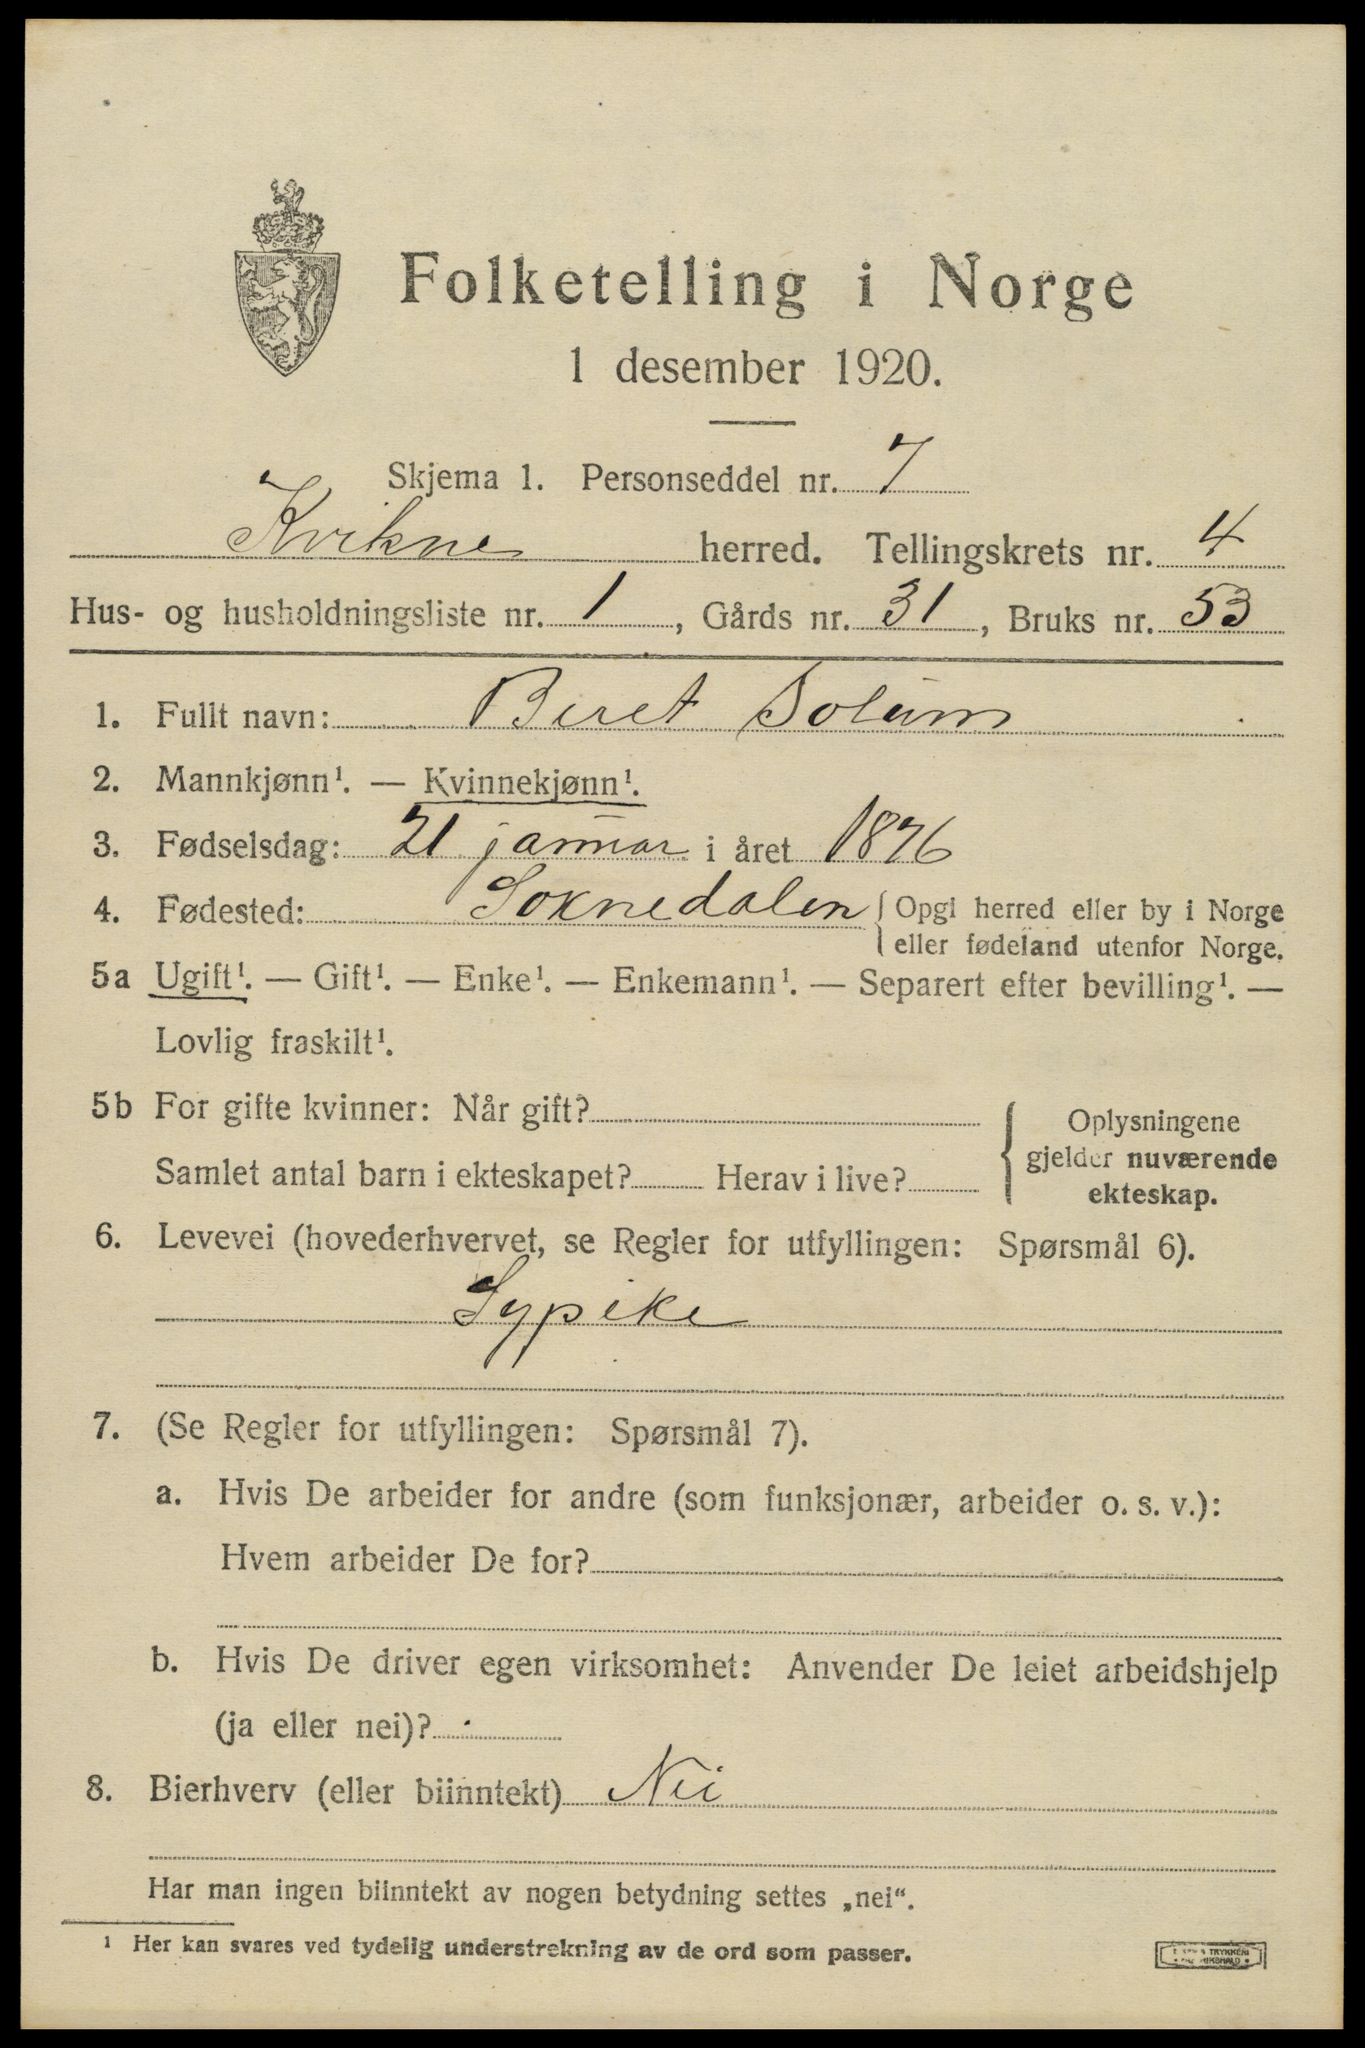 Folketelling i Norge
1 desember 1920.
Skjema 1. Personseddel nr. 7
Kvikne herred. Tellingskrets nr. 4
Hus- og husholdningsliste nr. 1, Gårds nr. 31, Bruks nr. 53
1. Fullt navn: Beret Solum
2. Mannkjønn¹. — Kvinnekjønn¹.
3. Fødselsdag: 21 januar i året 1876
4. Fødested: Soknedalen { Opgi herred eller by i Norge
eller fødeland utenfor Norge.
5a Ugift¹. — Gift¹. — Enke¹. — Enkemann¹. — Separert efter bevilling¹. —
Lovlig fraskilt¹.
5b For gifte kvinner: Når gift?
Samlet antal barn i ekteskapet? Herav i live?
Oplysningene
gjelder nuværende
ekteskap.
6. Levevei (hovederhvervet, se Regler for utfyllingen: Spørsmål 6).
Sypike
7. (Se Regler for utfyllingen: Spørsmål 7).
a. Hvis De arbeider for andre (som funksjonær, arbeider o. s. v.):
Hvem arbeider De for?
b. Hvis De driver egen virksomhet: Anvender De leiet arbeidshjelp
(ja eller nei)?
8. Bierhverv (eller biinntekt) Nei
Har man ingen biinntekt av nogen betydning settes „nei“.
¹ Her kan svares ved tydelig understrekning av de ord som passer.
TRYKKERI